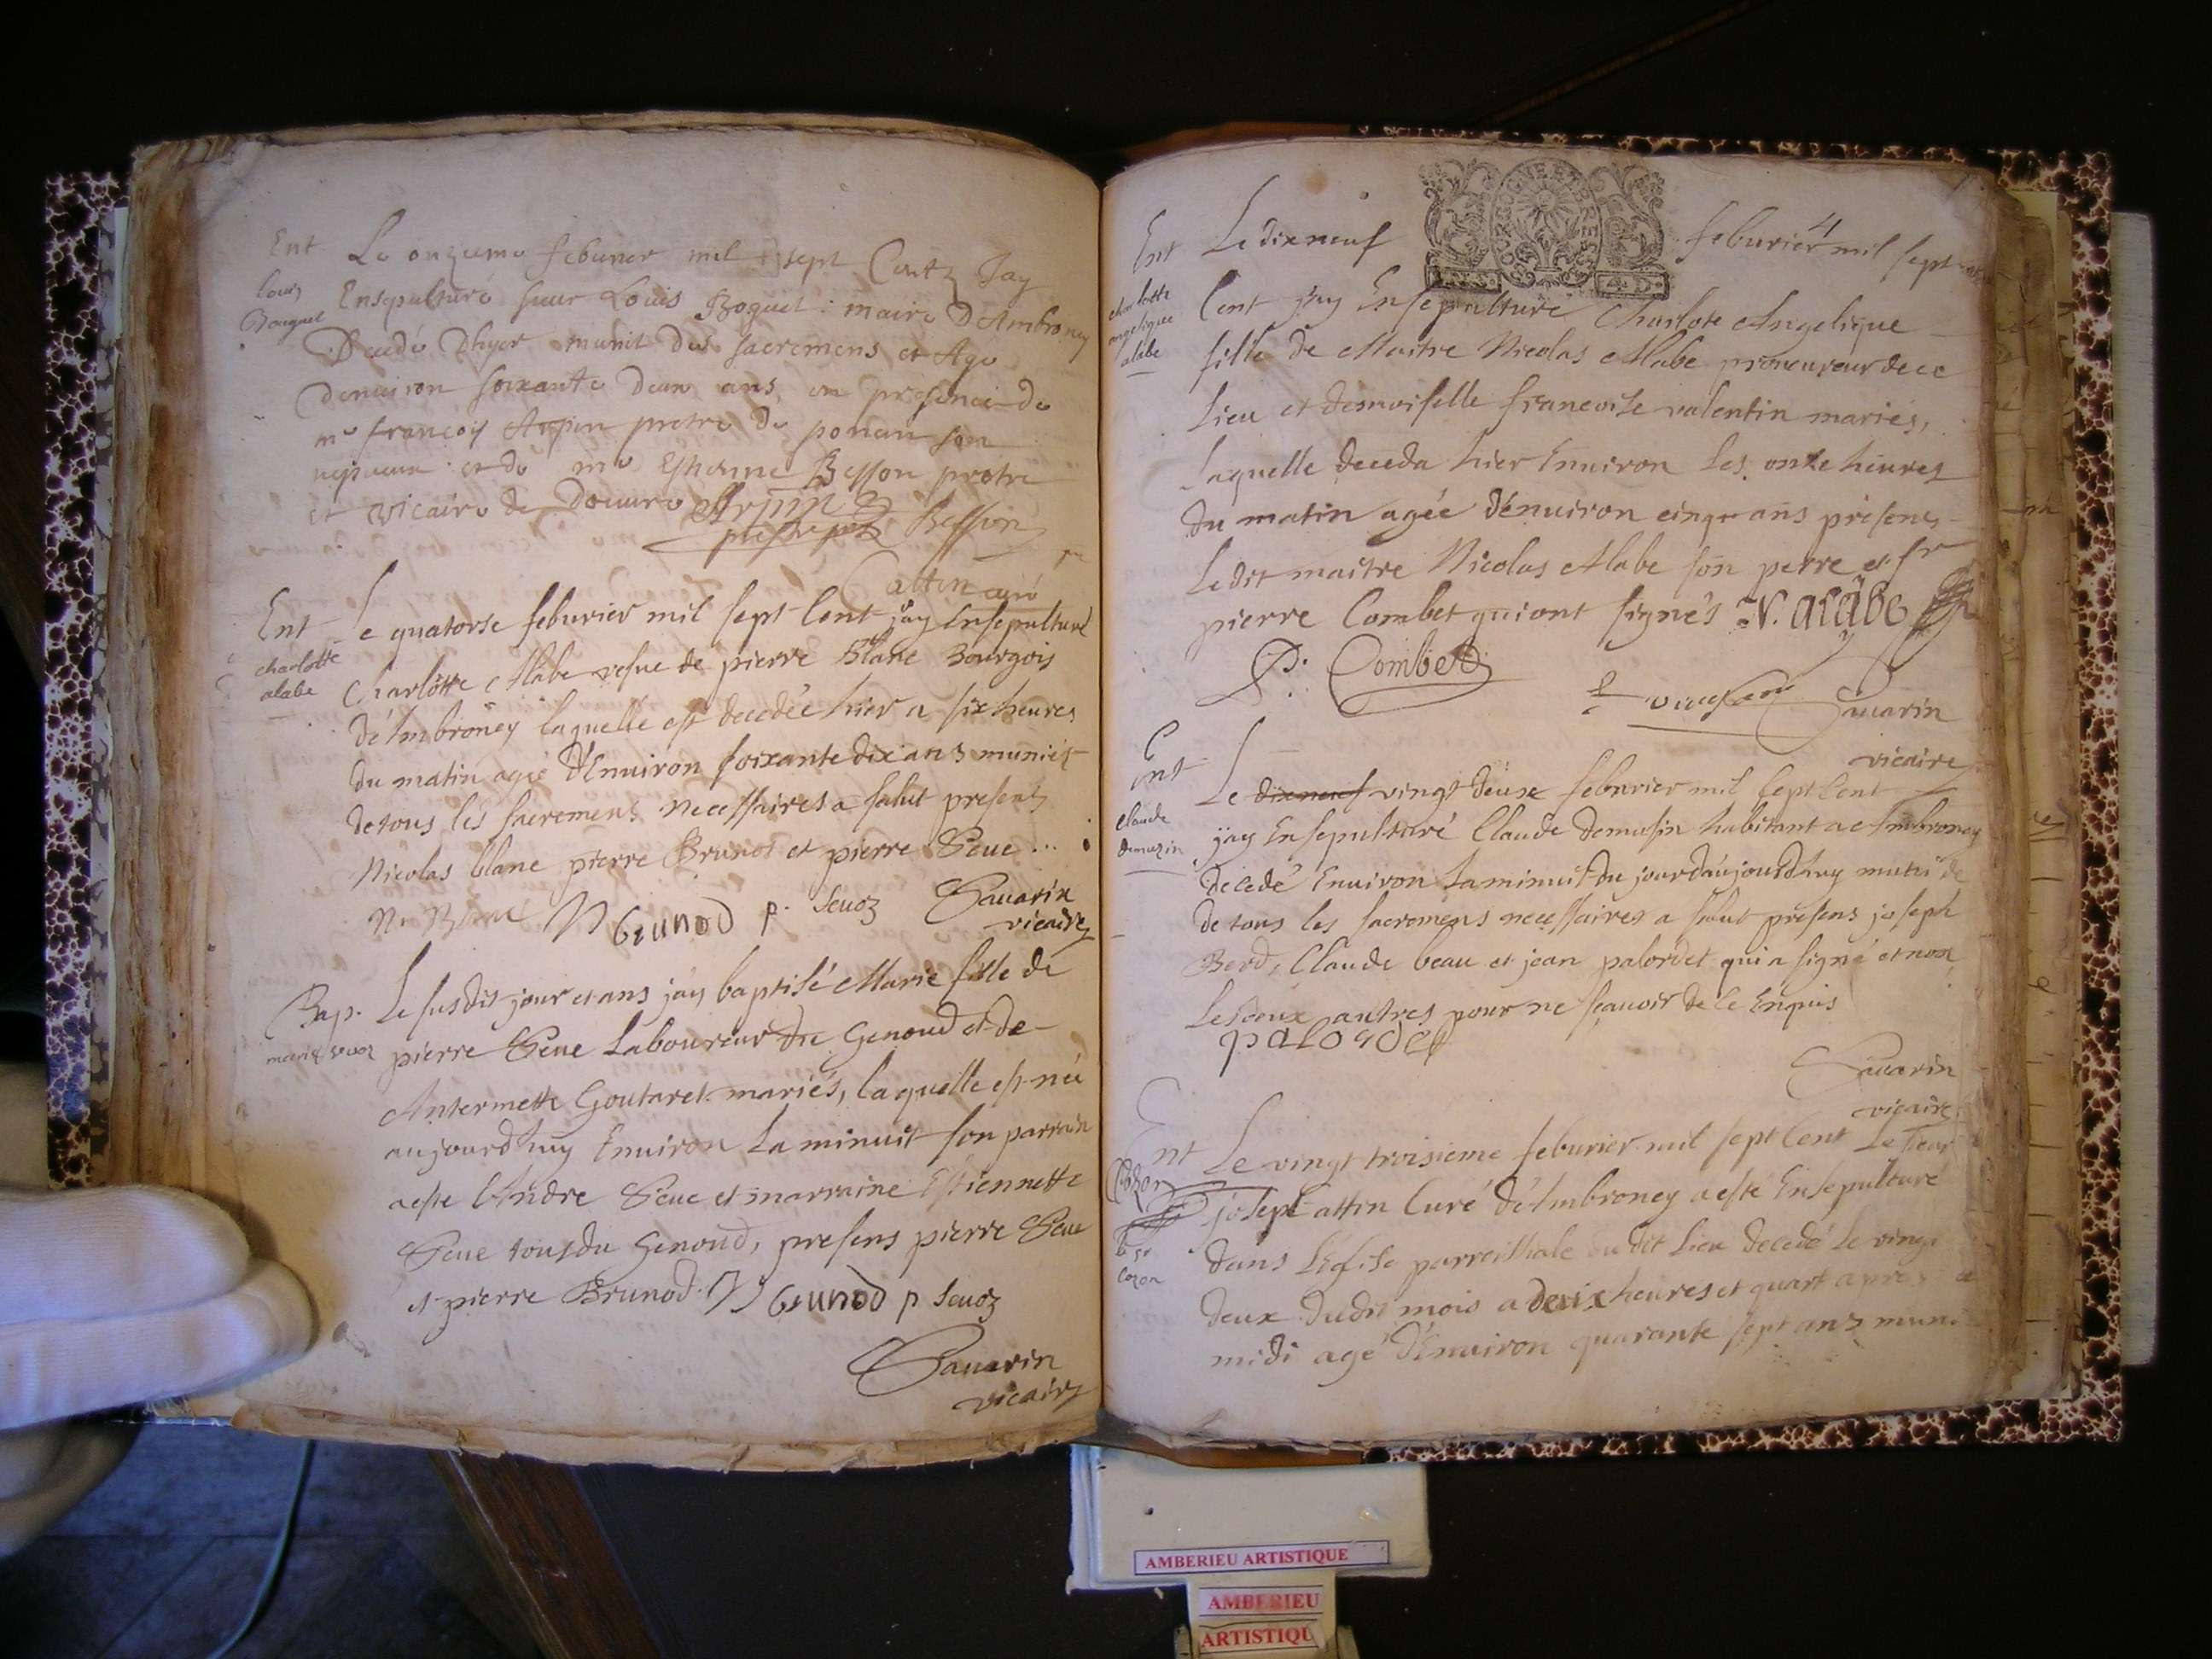 Ent
louis
Bouquet
Le onzieme feburier mil sept Centz Jay
Ensepulturé sieur Louis Boquet : maire D'Ambroney
Decedé Dhyer munit des sacremens et Agé
Denuiron soixante deux ans, en presence de
mre françois Arpin pretre de poncin son
nepueur et de mre Esthienne Besson pretre
et vicaire de Douure Arpin
Besson
attin curé
Ent
charlotte
alabe
Le quatorse feburier mil sept Cent jay Ensepulturé
Charlotte Alabe vefue de pierre Blanc Bourgois
d'Ambroney laquelle est decedée hier a six heures
du matin agée d'Enuiron soixante dix ans muniée
de tous les sacremens necessaires a salut presents
Nicolas blanc pierre Brunod et pierre Seue ...
N. Blanc Brunod p. seuoz Sauarin
vicaire
Bap.
marie seuoz
Le susdit jour et ans jay baptisé Marie fille de
pierre Seue Laboureur du Genoud et de
Antermette Goutaret mariés, laquelle est née
aujourdhuy Enuiron La minuit son parrain
a este Andre Seue et marraine Estiennette
Seue tous du Genoud, presens pierre Seue
et pierre Brunod. Brunod p seuoz
Sauarin
vicaire
BOURG EN BRESSE
4 D.
Ent
charlotte
angelique
alabe
Le dix neuf feburier mil sept
Cent jay Ensepulturé Charlote Angelique
fille de Maitre Nicolas Alabe procureur de ce
Lieu et demoiselle francoise valentin mariés,
Laquelle deceda hier Enuiron Les onze heures
du matin agée d'enuiron cinq ans presens
Ledit maitre Nicolas Alabe son perre et sr
pierre Combet qui ont signés N. alabe
P. Combet
Sauarin
vicaire
Ent
claude
demuzin
Le dixneuf vingt deuxe feburier mil sept Cent
jay Ensepulturé Claude demusin habitant a Ambroney
decedé Enuiron La minuit du jour d'aujourdhuy muni de
de tous les sacremens necessaires a salut presens joseph
Berd, Claude beau et jean palordet qui a signé et non
Les deux autres pour ne sçauoir de ce Enquis
palordet
Sauarin
vicaire
Ent
le sr
cozon
Le vingt troisieme feburier mil sept Cent Le sieur
joseph attin Curé d'Ambroney a esté Ensepulturé
dans L'Eglise parroissiale du dit Lieu decedé Le vingt
deux dudit mois a deux heures et quart apres
midi agé d'Enuiron quarante sept ans muni
AMBERIEU ARTISTIQUE
AMBERIEU
ARTISTIQU